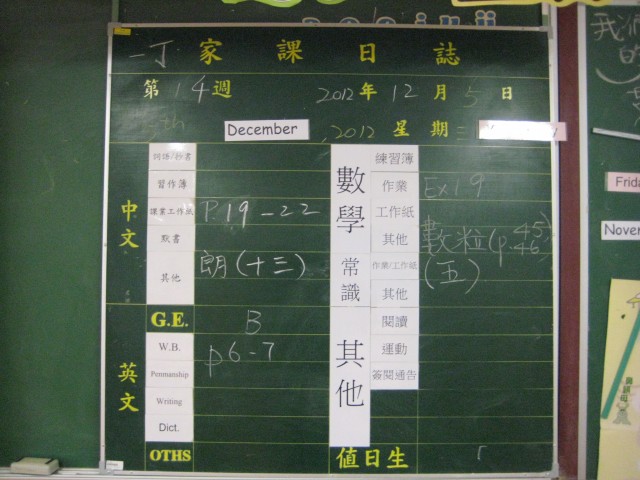 一丁 家課日誌
第14週 2012年12月5日
5th December, 2012 星期三
中文
詞語/抄書
習作簿
課業工作紙 P.19-22
默書
其他 朗(十三)
G.E. B
英文
W.B. p6-7
Penmanship
Writing
Dict.
OTHS
數學
練習簿
作業 Ex19
工作紙
其他 數粒(p.45 46)
常識
作業/工作紙 (五)
其他
其他
閱讀
運動
簽閱通告
值日生
我
的
Frida
Nover